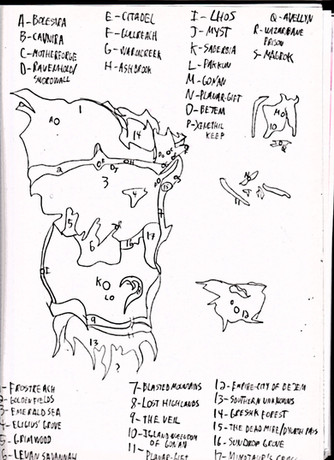 A- BOLESARA
B- CAUNITA
C- MOTHERFORGE
D- RAVENHOLD/
SWORDWALL
E- CITADEL
F- GULLREACH
G- WARDCREEK
H- ASHBROOK
I- LHOS
J- MYST
K- SADERSIA
L- PAKKUN
M- GONAN
N- PLANAR-GIFT
O- BETEM
KEEP
Q- AVELLYN
PRISON
S- MAGROK
1
14
3
4
5
6
16
17
K
LO
9
13
?
10
- FROSTREACH
- GOLDENFIELDS
3- EMERALD SEA
4- ELIGIUS' GROVE
5- GRIMWOOD
6- LEVAN SAVANNAH
7- BLASTED MOUNTAINS
8- LOST HIGHLANDS
9- THE VEIL
10- ISLAND KINGDOM
OF GONAN
11- PLANAR-GIFT
12- EMPIRE-CITY OF BETEM
13- SOUTHERN UNKNOWNS
14- GRESHK FOREST
15- THE DEAD MIRE/DYNORTH PASS
16- SUNDROP GROVE